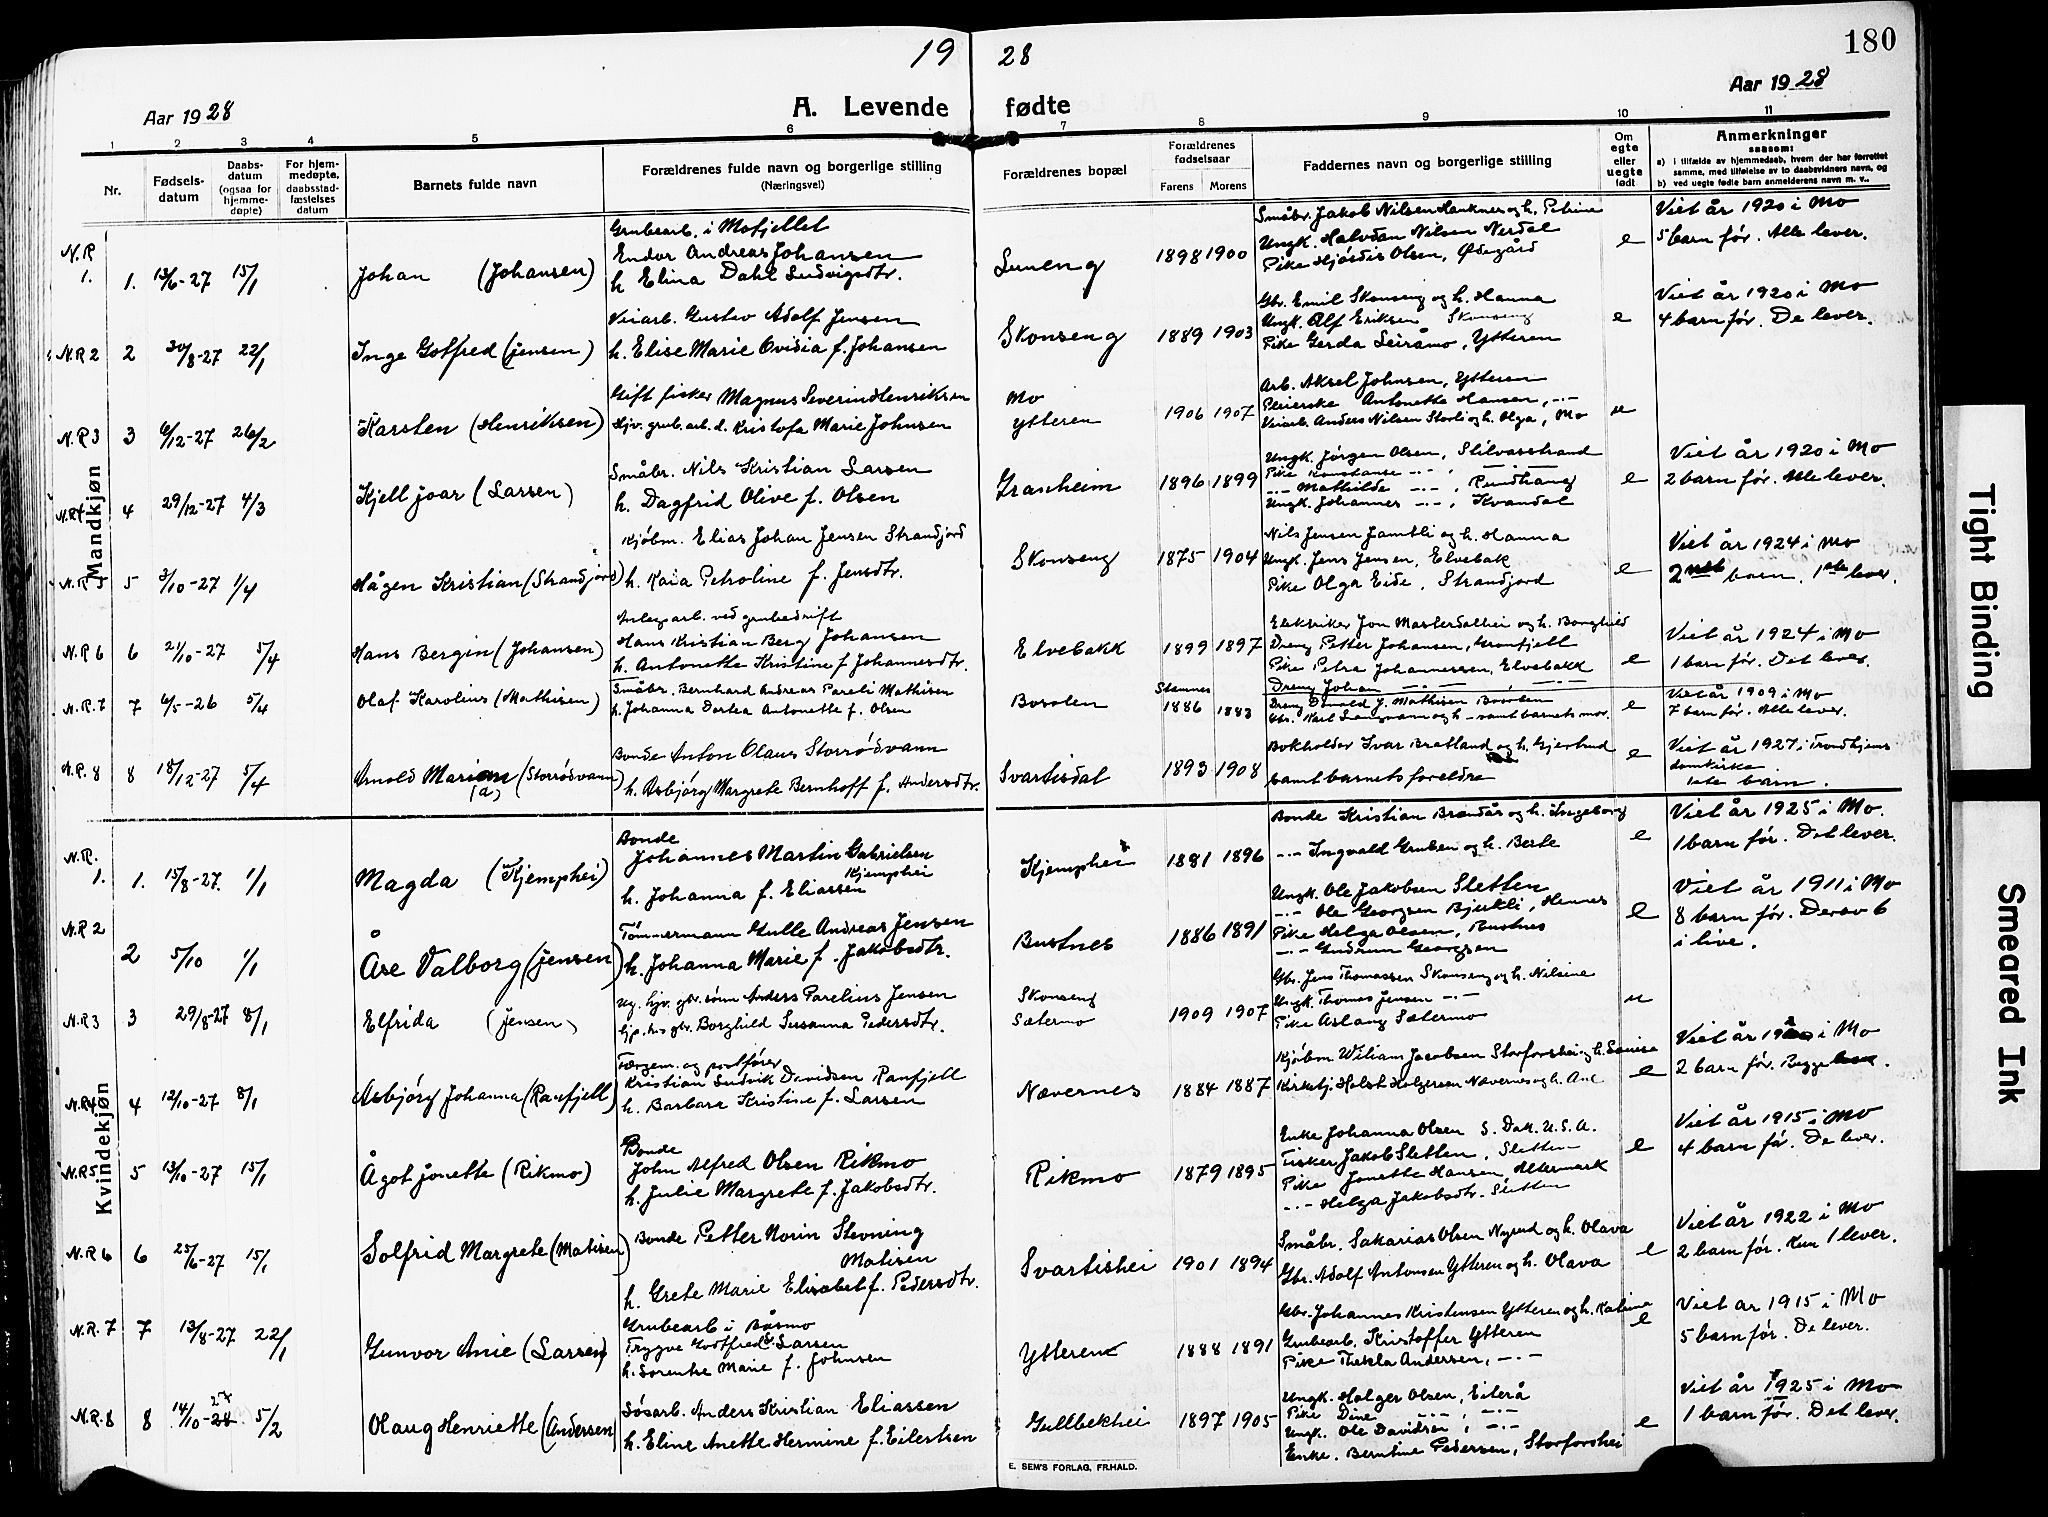 19 28
180
Aar 1928
A. Levende fødte
Aar 1928
1 2 3 4 5 6 7 8 9 10 11
Nr.
Fødsels-datum
Daabs-datum (ogsaa for hjemme-døpte)
For hjem-medøpte, daabsstad-fæstelses datum
Barnets fulde navn
Forældrenes fulde navn og borgerlige stilling (Næringsvei)
Forældrenes bopæl
Forældrenes fødselsaar
Farens Morens
Faddernes navn og borgerlige stilling
Om egte eller uegte født
Anmerkninger
saasom:
a) i tilfælde av hjemmedaab, hvem der har forrettet samme, med tilføielse av to daabsvidners navn, og
b) ved uegte fødte barn anmelderens navn m. v..
Mandkjøn
N.R 1. 1. 13/6-27 15/1 Johan (Johansen)
Grubearb. i Mofjellet
Endor Andreas Johansen
h. Elina Dahl Ludvigsdtr.
Luneng 1898 1900
Småbr. Jakob Nilsen Hauknes og h. Petrine
Ungk. Halvdan Nilsen Nerdal
Pike Hjördis Olsen, Ødegård
e
Viet år 1920 i Mo
5 barn før. Alle lever.
N.R 2 2 30/8-27 22/1 Inge Gotfred (Jensen)
Veiarb. Gustav Adolf Jensen
h. Elise Marie Ovidia f. Johansen
Skonseng 1889 1903
Gbr. Emil Skonseng og h. Hanna
Ungk. Alf Eriksen Skonseng
Pike Gerda Leiråmo, Ytteren
e
Viet år 1920 i Mo
4 barn før. De lever.
N.R 3 3 6/12-27 26/2 Karsten (Henriksen)
Gift fisker Magnus Severin Henriksen
Hjv. grub. arb. d. Kristofa Marie Johnsen
Mo
Ytteren 1906 1907
Arb. Aksel Johnsen, Ytteren
Pleierske Antonette Hansen, -..-
Veiarb. Anders Nilsen Storli og h. Olga, Mo
u
N.R 4 4 29/12-27 4/3 Kjell Joar (Larsen)
Småbr. Nils Kristian Larsen
h. Dagfrid Olive f. Olsen
Granheim 1896 1899
Ungk. Jörgen Olsen, Stilvasstrand
Pike Konstanse -..-, -..-
-..- Mathilde -..-, Rundhaug
Ungk. Johannes -..-, Kvandal
e
Viet år 1920 i Mo
2 barn før. Alle lever.
N.R 5 5 3/10-27 1/4 Hågen Kristian (Strandjord)
Kjøbm. Elias Johan Jensen Strandjord
h. Kaia Petroline f. Jensdtr.
Skonseng 1875 1904
Nils Jensen Jamtli og h. Hanna
Ungk. Jens Jensen, Elvebak
Pike Olga Eide, Strandjord
e
Viet år 1924 i Mo
2net barn. 1ste lever.
N.R 6 6 21/10-27 5/4 Hans Bergin (Johansen)
Anlegsarb. ved grubedrift
Hans Kristian Berg Johansen
h. Antonette Kristine f. Johannesdtr.
Elvebakk 1899 1897
Elektriker Jon Masterdalhei og h. Borghild
Dreng Petter Johansen, Grønfjell
Pike Petra Johannessen, Elvebakk
Dreng Johan -..- -..-
e
Viet år 1924 i Mo
1 barn før. Det lever.
N.R. 7 7 6/5-26 5/4 Olaf Karolius (Mathisen)
Småbr. Bernhard Andreas Pareli Mathisen
h. Johanna Dortea Antonette f. Olsen
Stamnes 1886 1883
Dreng Donald J. Mathisen
Gbr. Karl Langvann og h. - samt barnets mor.
e
Viet år 1909 i Mo
7 barn før. Alle lever.
N.R. 8 8 18/12-27 5/4 Arnold Marion (Storrösvann)
(a)
Bonde Anton Olaus Storrösvann
h. Asbjørg Margrete Bernhoff f. Andersdtr.
Svartisdal 1893 1908
Bokholder Ivar Bretland og h. Gjertrud
samt barnets foreldre
e
Viet år 1927 i Trondhjems
domkirke
1ste barn.
Kvindekjøn
N.R. 1. 1. 15/8-27. 1/1 Magda (Kjemphei)
Bonde
Johannes Martin Gabrielsen
Kjemphei
h. Johanna f. Eliassen
Kjemphei 1881 1896
Bonde Kristian Brendås og h. Ingeborg
-..- Ingvald Gruben og h. Berte
e
Viet år 1925 i Mo.
1 barn før. Det lever.
N.R 2 2 5/10 1/1 Åse Valborg (Jensen)
Tömmermann Gulle Andreas Jensen
h. Johanna Marie f. Jakobsdtr.
Bustnes 1886 1891
Ungk. Ole Jakobsen Sletten
-..- Ole Georgsen Bjerkli, Hennes
Pike Helga Olsen, Bustnes
-..- Gudrun Georgsen
e
Viet år 1911 i Mo
8 barn før. Derav 6
i live.
N.R 3 3 29/8-27 8/1 Elfrida (Jensen)
Ug. hjv. gbr. sønn Anders Parelius Jensen
Borghild Susanna Pedersdtr.
Skonseng
Sætermo 1909 1907
Gbr. Jens Thomassen Skonseng og h. Nilsine
Ungk. Thomas Jensen -..-
Pike Aslaug Sætermo
u
N.R 4 4 12/10-27 8/1 Asbjörg Johanna (Ranfjell)
Færgem. og postfører
Kristian Ludvik Davidsen Ranfjell
h. Barbara Kristine f. Larsen
Nævernes 1884 1887
Kjøbm. Wiliam Jacobsen Storforshei og h. Louise
Kirketj. Holst Holgersen Nævernes og h. Ane
e
Viet år i Mo
2 barn før. Begge lever.
N.R. 5 5 13/10-27 15/1 Ågot Jonette (Rikmo)
Bonde
John Alfred Olsen Rikmo
h. Julie Margrete f. Jakobsdtr.
Rikmo 1879 1895
Enke Johanna Olsen S. Dak. U.S.A.
Fisker Jakob Sletten, Sletten
Pike Jonette Hansen, Altermark
-..- Helga Jakobsdtr. Sletten
e
Viet år 1915 i Mo
4 barn før. De lever.
N.R 6 6 25/6-27 15/1 Solfrid Margrete (Matisen)
Bonde Petter Norin Stevning
Matisen
h. Grete Marie Elisabet f. Pedersdtr.
Svartishei 1901 1894
Småbr. Sakarias Olsen Nyrud og h. Olava
Gbr. Adolf Antonsen Ytteren og h. Olava
e
Viet år 1922 i Mo
2 barn før. Kun 1 lever.
N.R. 7 7 13/8-27 22/1 Gunvor Anie (Larsen)
Grubearb i Båsmo
Trygve Godtfred Larsen
h. Sorentse Marie f. Johnsen
Ytteren 1888 1891
Gbr. Johannes Kristensen Ytteren og h. Katrine
Grubearb. Kristoffer Ytteren
Pike Thekla Andersen, -..-
e
Viet år 1915 i Mo
5 barn før. De lever.
N.R. 8 8 14/10-27 5/2 Olaug Henriette (Andersen)
Løsarb. Anders Kristian Eliassen
h. Eline Anette Hermine f. Eilertsen
Gullbekhei 1897 1905
Ungk. Holger Olsen, Eiterå
Pike Dine -..-, -..-
Ungk. Ole Davidsen, -..-
Enke. Berntine Pedersen, Storforshei
e
Viet år 1925 i Mo
1 barn før. Det lever.
E. SEM'S FORLAG, FR.HALD.
Tight Binding
Smeared Ink